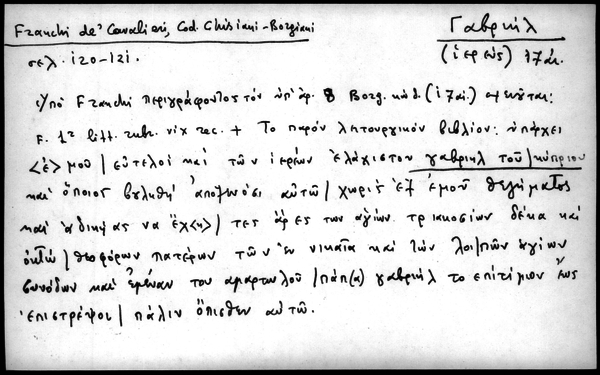 Franchi de' Cavalieri, Cod. Chisiani-Borgiani
Γαβριήλ
(ἱερεύς) 17 αἰ.
σελ. 120-121.
Ὑπὸ Franchi περιγράφοντος τὸν ὑπ' ἀρ. 8 Borg. κώδ. (17 αἰ.)
F. 1r litt. rubr. vix rec. + Το παρόν λητουργικόν βιβλίον: ὑπάρχει
<ἐ>μοῦ | εὐτελοί καὶ τῶν ἱερέων ἐλάχιστον γαβριήλ τοῦ | κύπριου
καὶ ὅποιος βυληθῆ ἀποξενόσι αὐτῶ | χωρὶς ἐξ ἐμοῦ θελήματος
καὶ ἀδικήας να ἔχ<η> | τες ἀρες των ἁγίων τριακοσίων δέκα καὶ
ὀκτώ | θεοφόρων πατέρων τῶν ἐν νικαῖα καὶ τῶν λοι|πῶν ἁγίων
συνόδων καὶ ἐμέναν του αμαρτωλοῦ | πάπ(α) γαβριήλ το ἐπιτίμιον ἕως
ἐπιστρέψοι | πάλιν ὄπισθεν αὐτῶ.